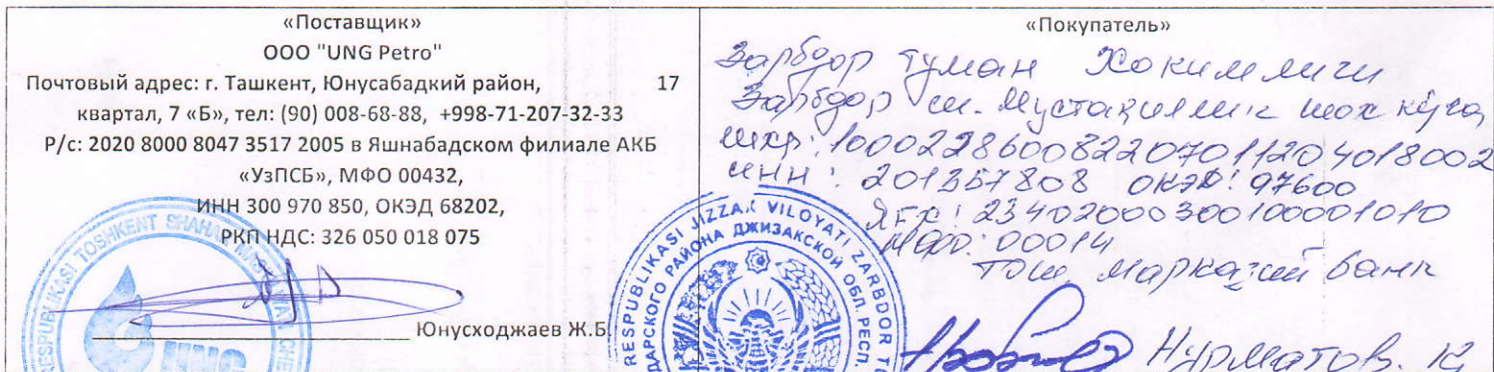 «Поставщик»
ООО "UNG Petro"
Почтовый адрес: г. Ташкент, Юнусабадкий район, 17
квартал, 7 «Б», тел: (90) 008-68-88, +998-71-207-32-33
Р/с: 2020 8000 8047 3517 2005 в Яшнабадском филиале АКБ
«УзПСБ», МФО 00432,
ИНН 300 970 850, ОКЭД 68202,
РКП НДС: 326 050 018 075
Юнусходжаев Ж.Б.
RESPUBLIKASI TOSHKENT SHAHAR
UNG
«Покупатель»
Зарбдор туман Хокимлиги
Зарбдор ш. Мустақиллик шох кўча
шхр: 100022860082207011204018002
инн: 201357808 ОКЭД: 97600
ЯҒХ: 23402000300100001010
Мфо: 00014
Тош Марказий банк
Нурматов. Қ
RESPUBLIKASI JIZZAX VILOYATI ZARBDOR
ДАРСКОГО РАЙОНА ДЖИЗАКСКОЙ ОБЛ. РЕСП.